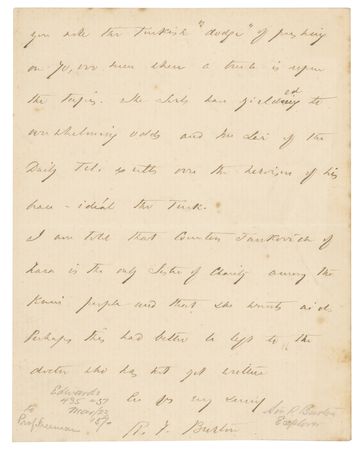 you note the Turkish "dodge" of pushing
on 70,000 men when a truce is upon
the tapis. The Serbs have yielded to
overwhelming odds and Mr of the
Daily Tel. exults over the heroism of his
beau-ideal the Turk.
I am told that Countess of
Zara is the only Sister of Charity among the
people and that she wants aid.
Perhaps this had better be left to the
doctor who has not yet written
Edwards
435 57
Mar/22
1890
To
Prof Freeman
R. F. Burton
Sir R Burton
Explorer